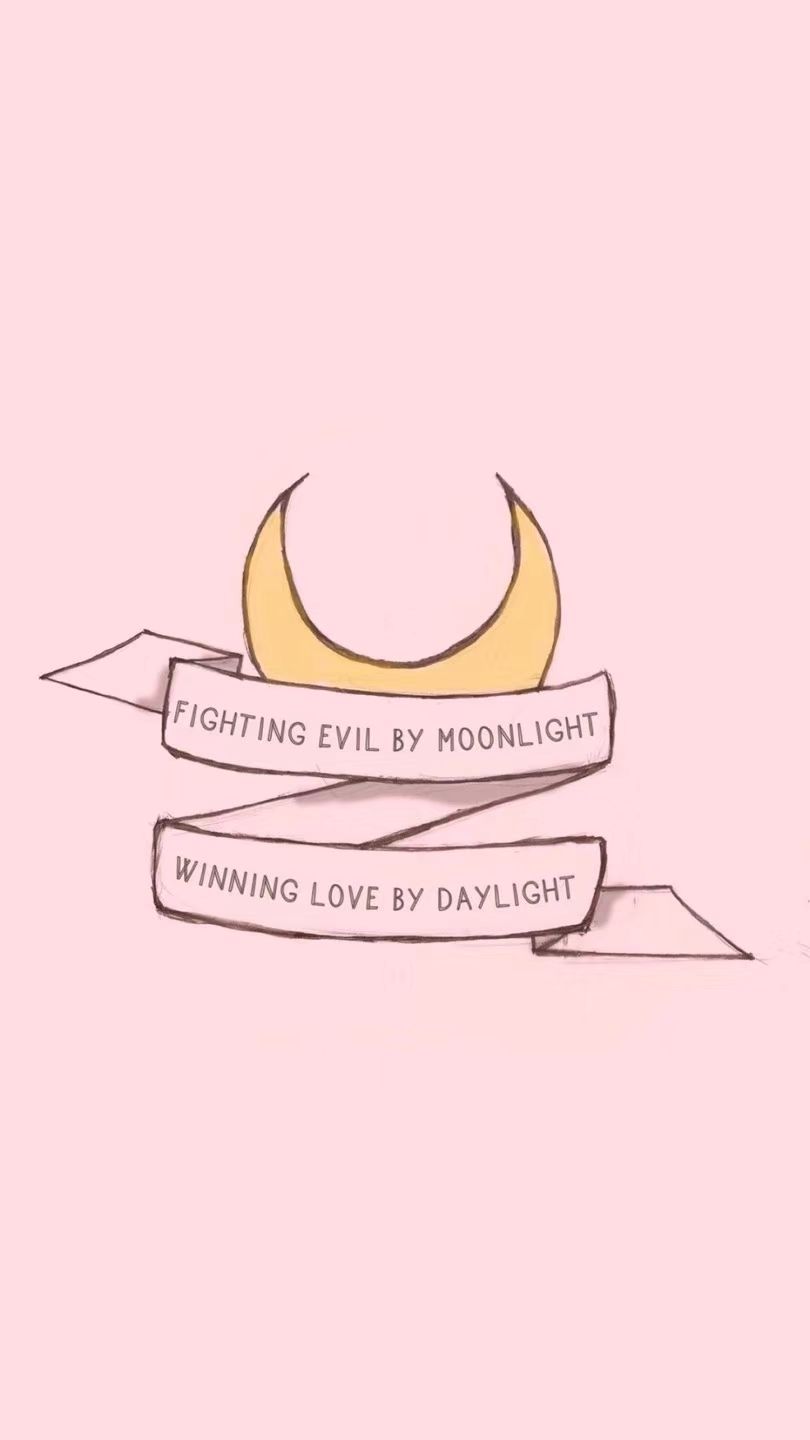 FIGHTING EVIL BY MOONLIGHT
WINNING LOVE BY DAYLIGHT